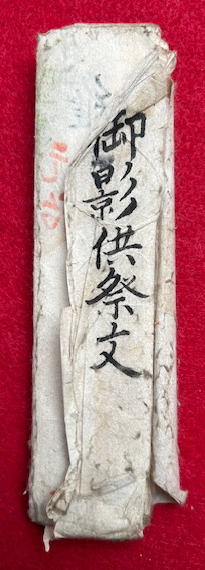 御影供祭文